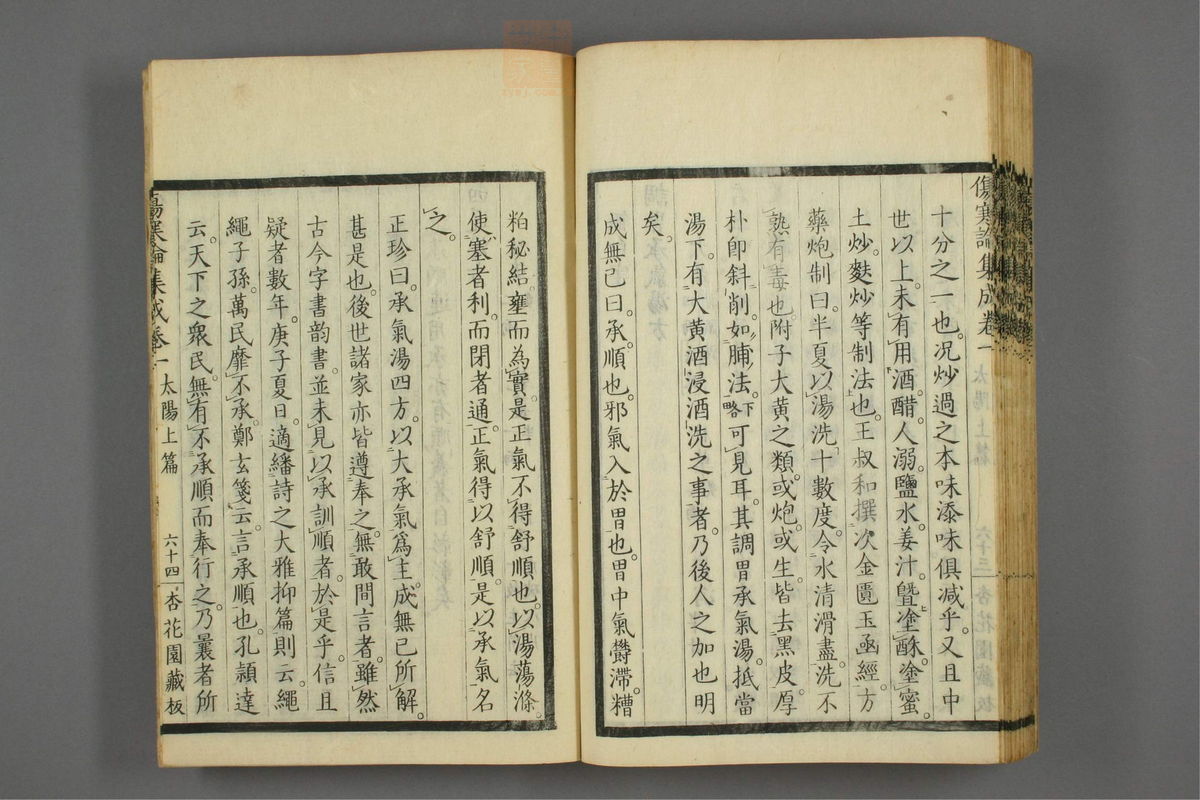 傷寒論集成卷一 太陽上篇 六十三 杏花園藏板
十分之一也。況炒過之本味添味俱減乎。又且中
世以上。未有用酒。醋。人溺。鹽水。姜汁。曁塗酥。塗蜜。
土炒。麩炒等制法也。王叔和撰次金匱玉函經。方
藥炮制曰。半夏以湯洗十數度。令水清滑盡。洗不
熟有毒也。附子大黃之類。或炮。或生。皆去黑皮。厚
朴卽斜削。如脯法。下略可見耳。其調胃承氣湯。抵當
湯下。有大黃酒浸酒洗之事者。乃後人之加也明
矣。
成無已曰。承。順也。邪氣入於胃也。胃中氣鬱滯。糟
粕秘結。壅而為實。是正氣不得舒順也。以湯蕩滌。
使塞者利。而閉者通。正氣得以舒順。是以承氣名
之。
正珍曰。承氣湯四方。以大承氣爲主。成無已所解。
甚是也。後世諸家亦皆遵奉之。無敢間言者。雖然
古今字書韵書。並未見以承訓順者。於是乎信且
疑者數年。庚子夏日。適繙詩之大雅抑篇則云。繩
繩子孫。萬民靡不承。鄭玄箋云。言承順也。孔頴達
云。天下之衆民。無有不承順而奉行之。乃曩者所
傷寒論集成卷一 太陽上篇 六十四 杏花園藏板